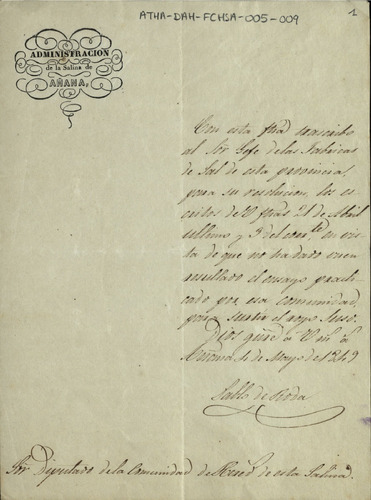 ATHA-DAH-FCHSA-005-009
1
ADMINISTRACION
de la Salina de
AÑANA,
Con esta fhã trascribo
al Sor Gefe de las Fabricas
de Sal de esta provincia,
para su resolucion, los es
critos de V fhas 21 de Abril
ultimo y 3 del corrte, en vis
ta de que no ha dado buen
resultado el ensayo practi
cado por esa comunidad,
para surtir el royo Suso.
Dios gũe a V m a
Añana 4 de Mayo de 1849
Pablo de Roda
Sor Diputado de la Comunidad de Hered de esta Salina.